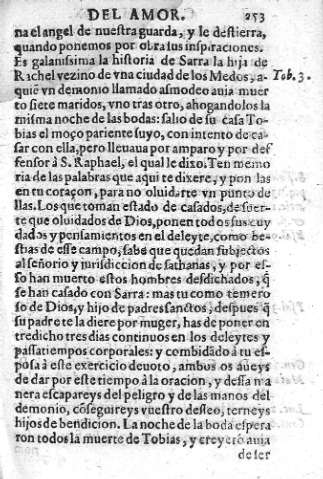 DEL AMOR. 253
na el angel de nuestra guarda, y le destierra,
quando ponemos por obra sus inspiraciones.
Es galanissima la historia de Sarra la hija de
Rachel vezino de vna ciudad de los Medos, a
quiẽ vn demonio llamado asmodeo auia muer
to siete maridos, vno tras otro, ahogandolos la
misma noche de las bodas: salio de su casa To-
bias el moço pariente suyo, con intento de ca-
sar con ella, pero lleuaua por amparo y por def
fensor à S. Raphael, el qual le dixo. Ten memo
ria de las palabras que aqui te dixere, y pon las
en tu coraçon, para no oluidarte vn punto de
llas. Los que toman estado de casados, de suer-
te que oluidados de Dios, ponen todos sus cuy
dados y pensamientos en el deleyte, como be-
stias de esse campo, sabe que quedan subjectos
al señorio y jurisdiccion de sathanas, y por es-
so han muerto estos hombres desdichados, q̃
se han casado con Sarra: mas tu como temero
so de Dios, y hijo de padres sanctos, despues q̃
su padre te la diere por muger, has de poner en
tredicho tres dias continuos en los deleytes y
passatiempos corporales: y combidãdo à tu es-
posa à este exercicio deuoto, ambos os aueys
de dar por este tiempo à la oracion, y dessa ma
nera escapareys del peligro y de las manos del
demonio, cõseguireys vuestro desseo, terneys
hijos de bendicion. La noche de la boda espera
ron todos la muerte de Tobias, y creyerõ auia
de ser
Tob. 3.